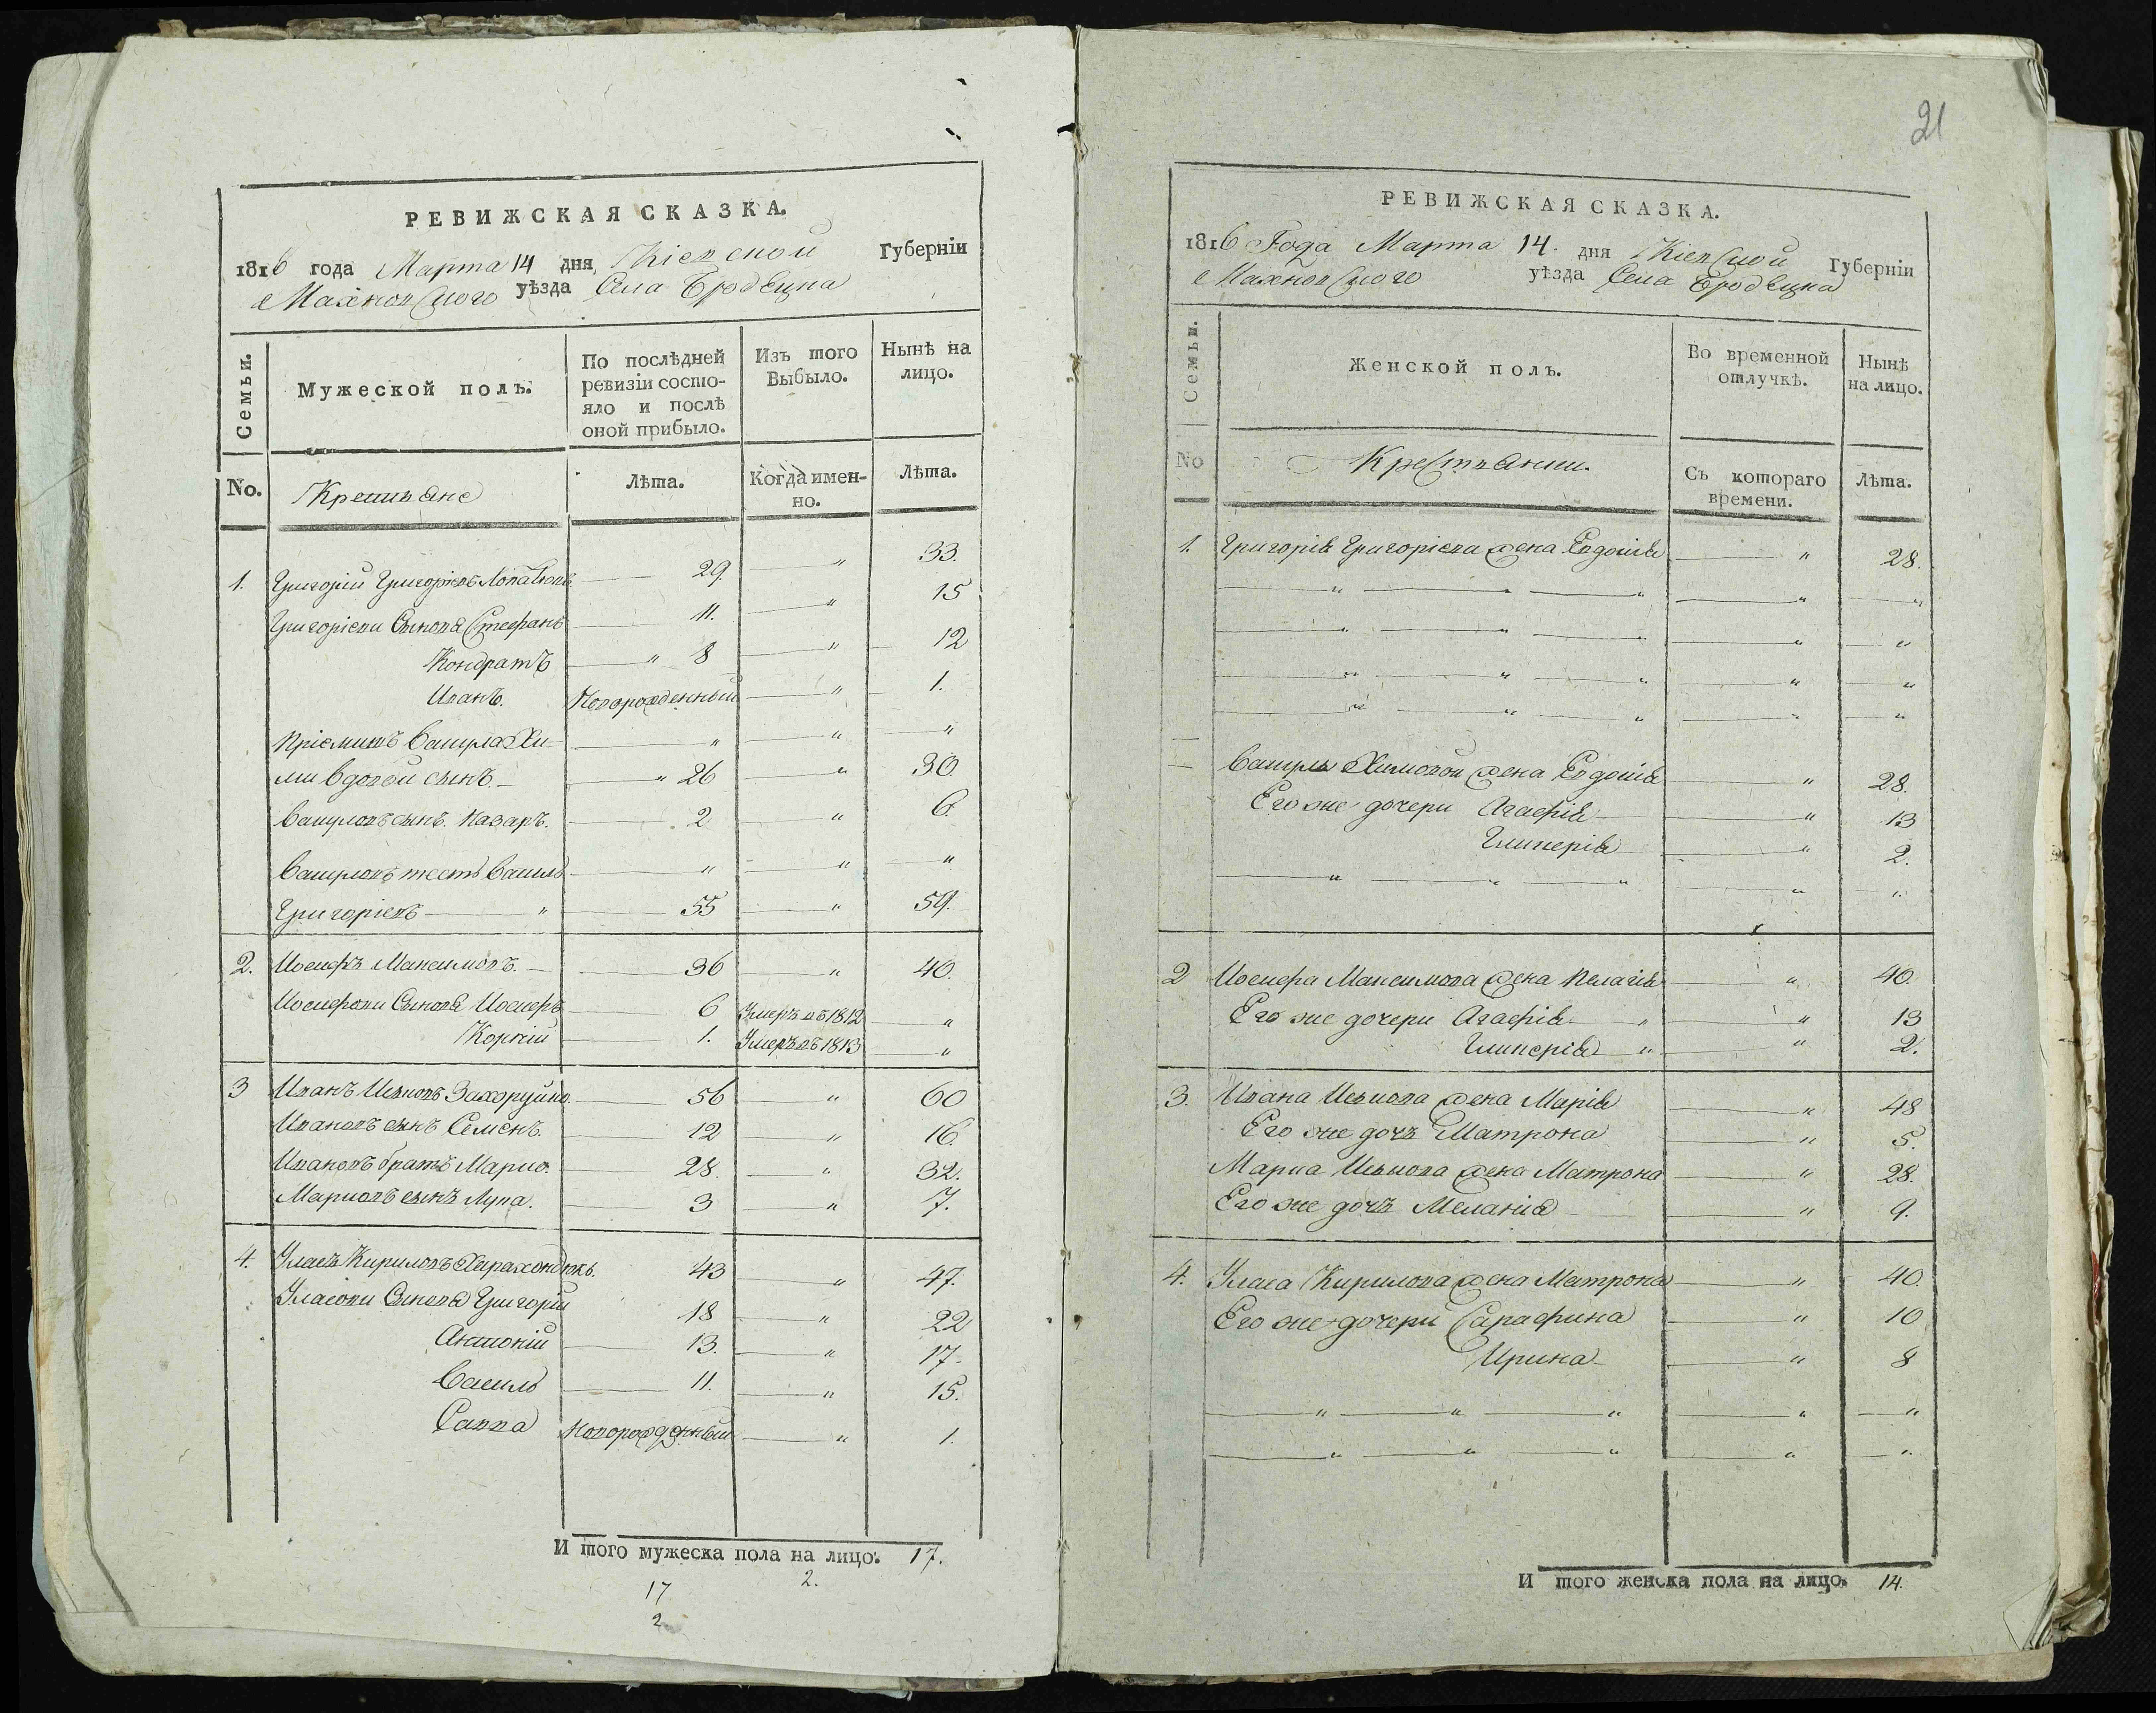 РЕВИЖСКАЯ СКАЗКА.
1816 года Марта 14 дня Кіевской Губерніи
Махновского уѣзда Села Бродѣцка
Семьи.
Мужеской полъ.
По послѣдней ревизіи состо-
яло и послѣ оной прибыло.
Изъ того Выбыло.
Нынѣ на лицо.
No. Крестьяне
Лѣта.
Когда имен-
но.
Лѣта.
1. Григорій Григоріевъ 29. " 33.
Григоріеви Сынова Стефанъ 11. " 15
Кондратъ " 8 " 12
Иванъ. Новорожденный " 1.
Пріемишъ Васила Хи- " " "
ми вдовой сынъ. " 26 " 30.
Василевъ сынъ. Назаръ. 2 " 6.
Василевъ тесть Василь " " "
Григоріевъ " 55 " 59.
2. Иосифъ Максимовъ. 36 " 40.
Иосифови Сынова Иосифъ 6 Умеръ въ 1812 "
Корній 1. Умеръ въ 1813 "
3 Иванъ Иевковъ Захаруйко 56 " 60
Ивановъ сынъ Семенъ. 12 " 16.
Ивановъ братъ Марко. 28. " 32.
Марковъ сынъ Лука. 3 " 7.
4. Уласъ Кириловъ 43 " 47.
Уласови Сынова Григорій 18 " 22
Антоній 13. " 17.
Василь 11. " 15.
Савва новорожденный " 1.
И того мужеска пола на лицо. 17.
17 2.
2
21
РЕВИЖСКАЯ СКАЗКА.
1816 Года Марта 14. дня Кіевской Губерніи
Махновского уѣзда Села Бродѣцка
Семьи.
Женской полъ.
Во временной отлучкѣ.
Нынѣ на лицо.
No Крестьянки.
Съ котораго времени.
Лѣта.
1. Григорія Григоріева жена Евдокія " 28.
" " " " "
" " " " "
" " " " "
" " " " "
Василя Химовой жена Евдокія " 28.
Его же дочери Агафія " 13
Гликерія " 2.
" " " " "
2 Иосифа Максимова жена Пелагія " 40.
Его же дочери Агафія " " 13
Гликерія " " 2.
3. Ивана Иевкова жена Марія " 48
Его же дочъ Матрона " 5.
Марка Иевкова жена Матрона " 28.
Его же дочъ Меланія " 9.
4. Уласа Кирилова жена Матрона " 40.
Его же дочери Сарафина " 10
Ирина " 8
" " " " "
" " " " "
И того женска пола на лицо. 14.